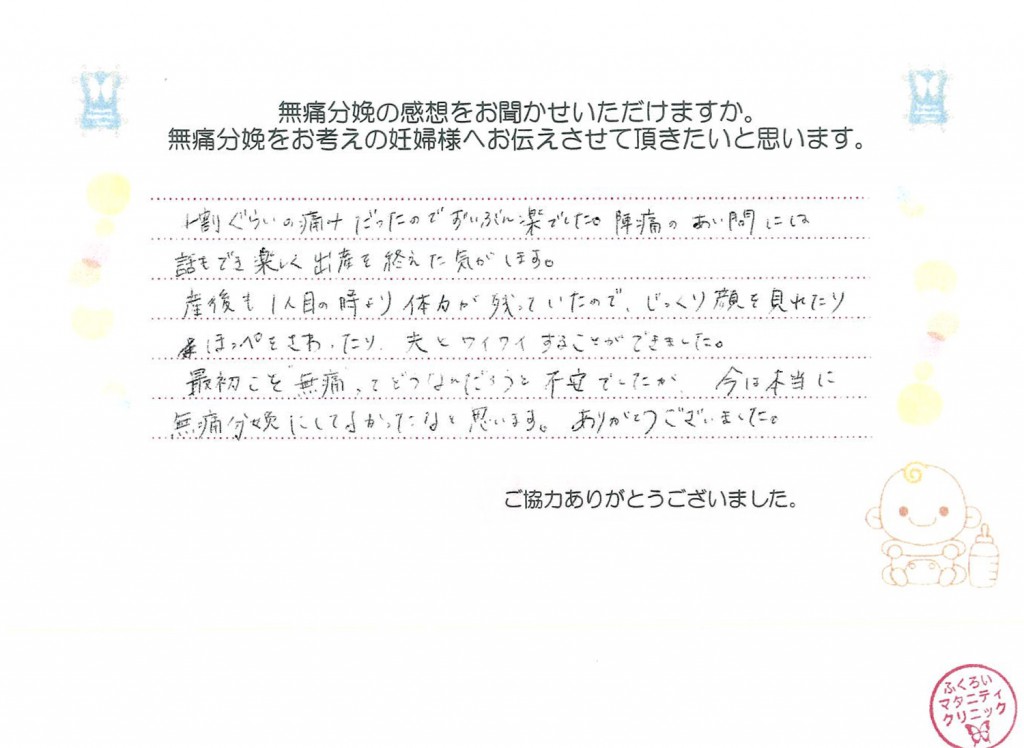 無痛分娩の感想をお聞かせいただけますか。
無痛分娩をお考えの妊婦様へお伝えさせて頂きたいと思います。
割ぐらいの痛みだったのでずいぶん楽でした。陣痛のあい間には
話もでき楽しく出産を終えた気がします。
産後も1人目の時より体力が残っていたので、じっくり顔を見れたり
ほっぺをさわったり、夫とワイワイすることができました。
最初こそ"無痛"ってどうなんだろうと不安でしたが、今は本当に
無痛分娩にしてよかったなと思います。ありがとうございました。
ご協力ありがとうございました。
ふくろい
マタニティ
クリニック